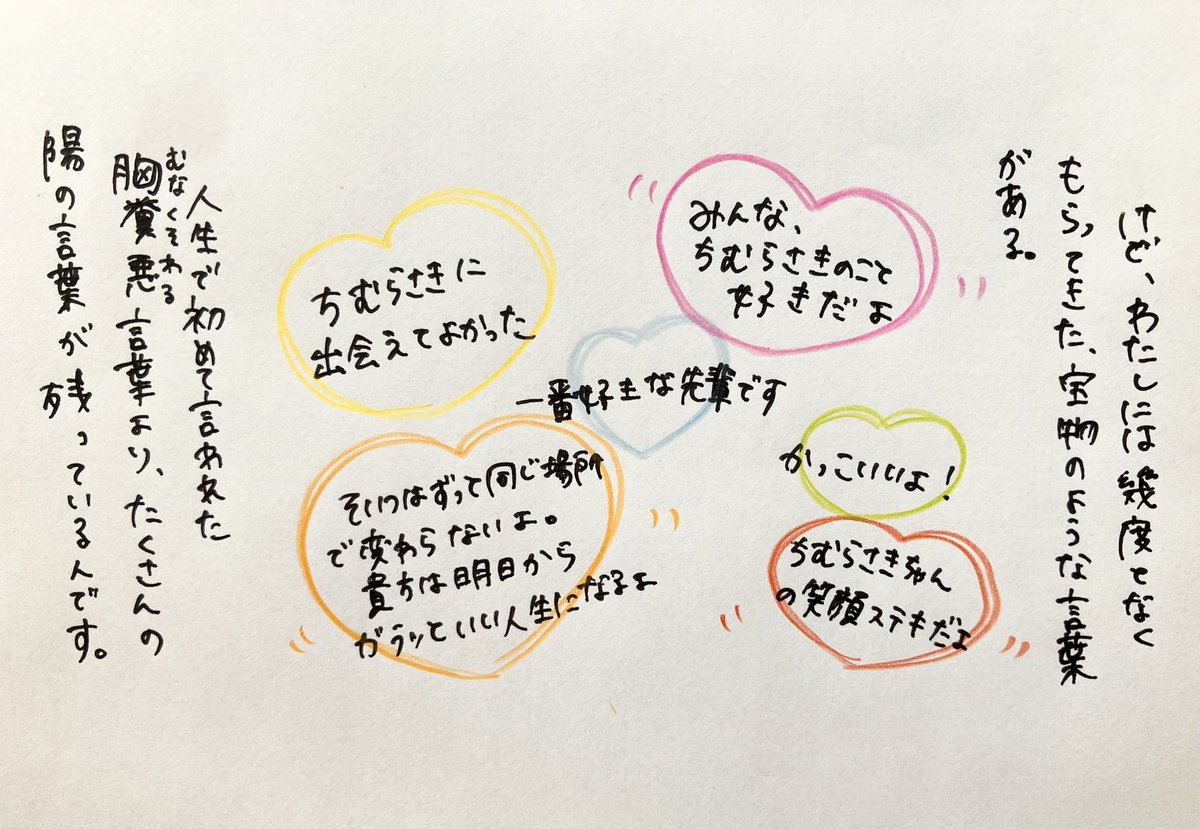 けど、わたしには幾度となく
もらってきた、宝物のような言葉
がある。
みんな、
ちむらさきのこと
好きだよ
ちむらさきに
出会えてよかった
一番好きな先輩です
かっこいいよ！
そいつはずって同じ場所
で変わらないよ。
貴方は明日から
ガラッといい人生になるよ
ちむらさきちゃん
の笑顔ステキだよ
人生で初めて言われた
胸糞悪言葉より、たくさんの
むなくそわる
陽の言葉が残っているんです。